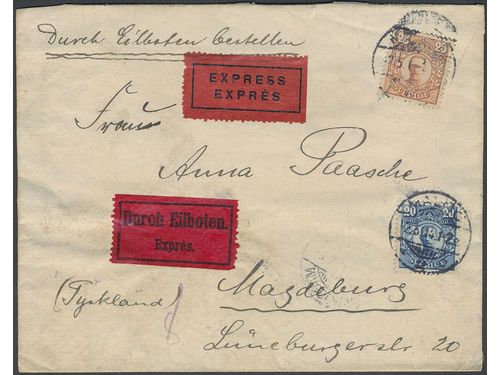 Durch Eilboten bestellen
EXPRESS
EXPRÈS
25 25
SVERIGE
Frau
Anna Paasche
Durch Eilboten.
Exprés.
20 20
SVERIGE
(Tyskland)
Magdeburg
Lüneburgerstr. 20